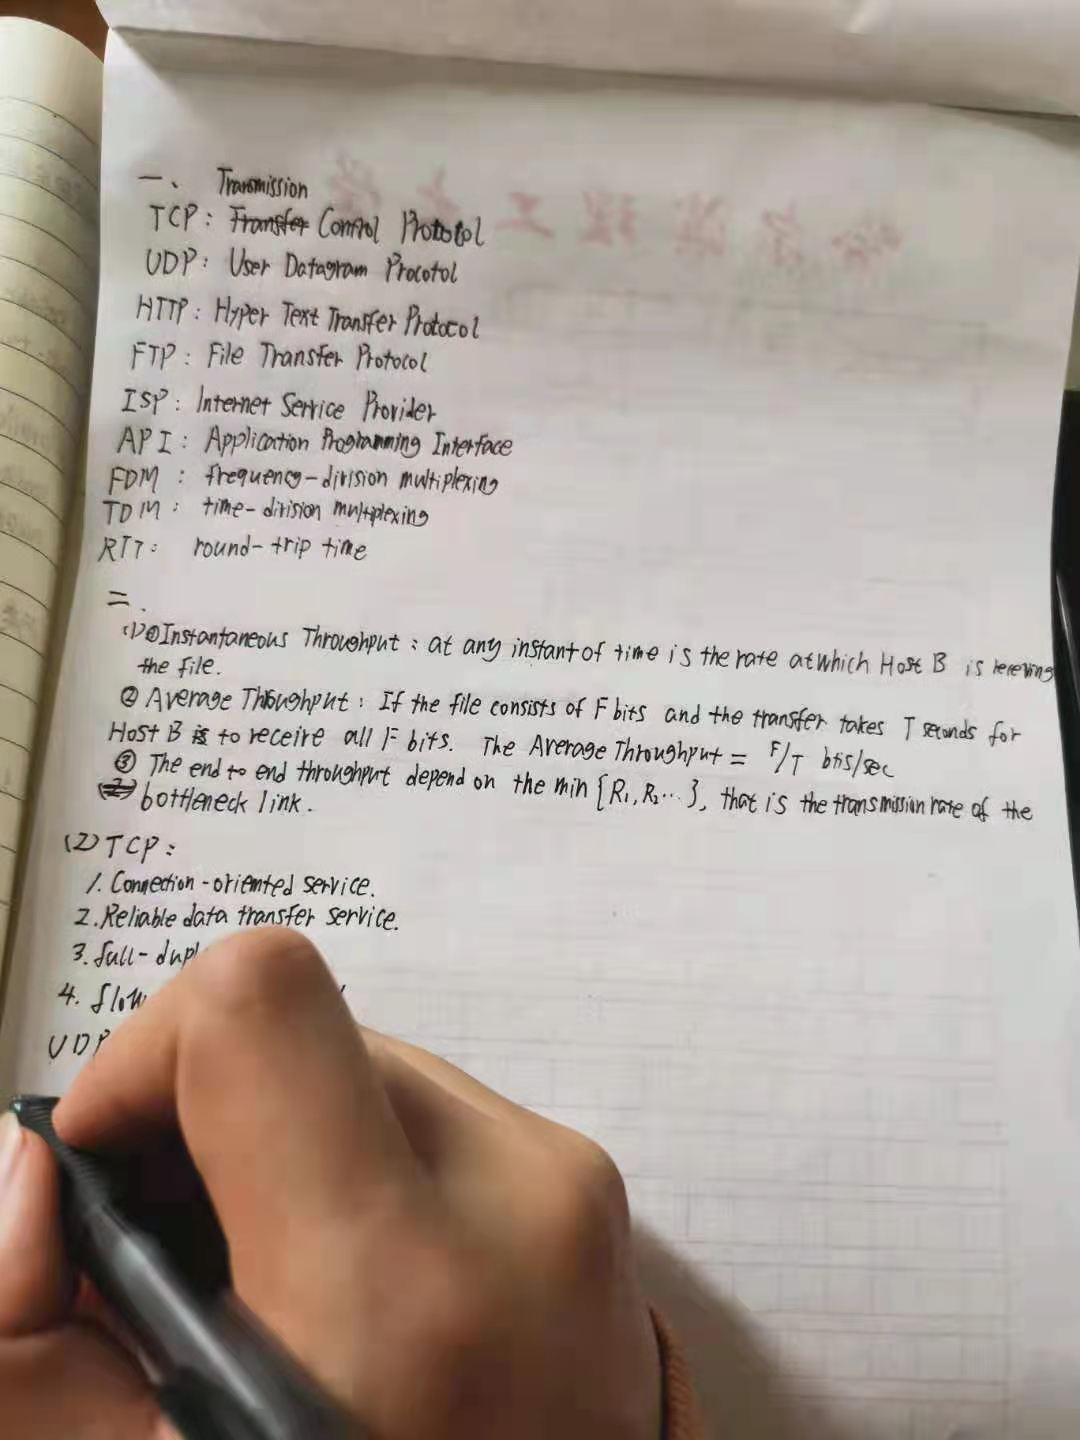 一、 Transmission
TCP: Transfer Control Protocol
UDP: User Datagram Procotol
HTTP: Hyper Text Transfer Protocol
FTP: File Transfer Protocol
ISP: Internet Service Provider
API: Application Programming Interface
FDM: frequency-division multiplexing
TDM: time-division multiplexing
RTT: round-trip time
二.
(1)①Instantaneous Throughput: at any instant of time is the rate at which Host B is receving
the file.
② Average Throughput: If the file consists of F bits and the transfer takes T seconds for
Host B to receive all F bits. The Average Throughput = F/T btis/sec
③ The end to end throughput depend on the min {R1, R2...}, that is the transmission rate of the
bottleneck link.
(2) TCP:
1. Connection-oriented service.
2. Reliable data transfer service.
3. full-dupl
4. flow
UDP
哈尔滨理工大学